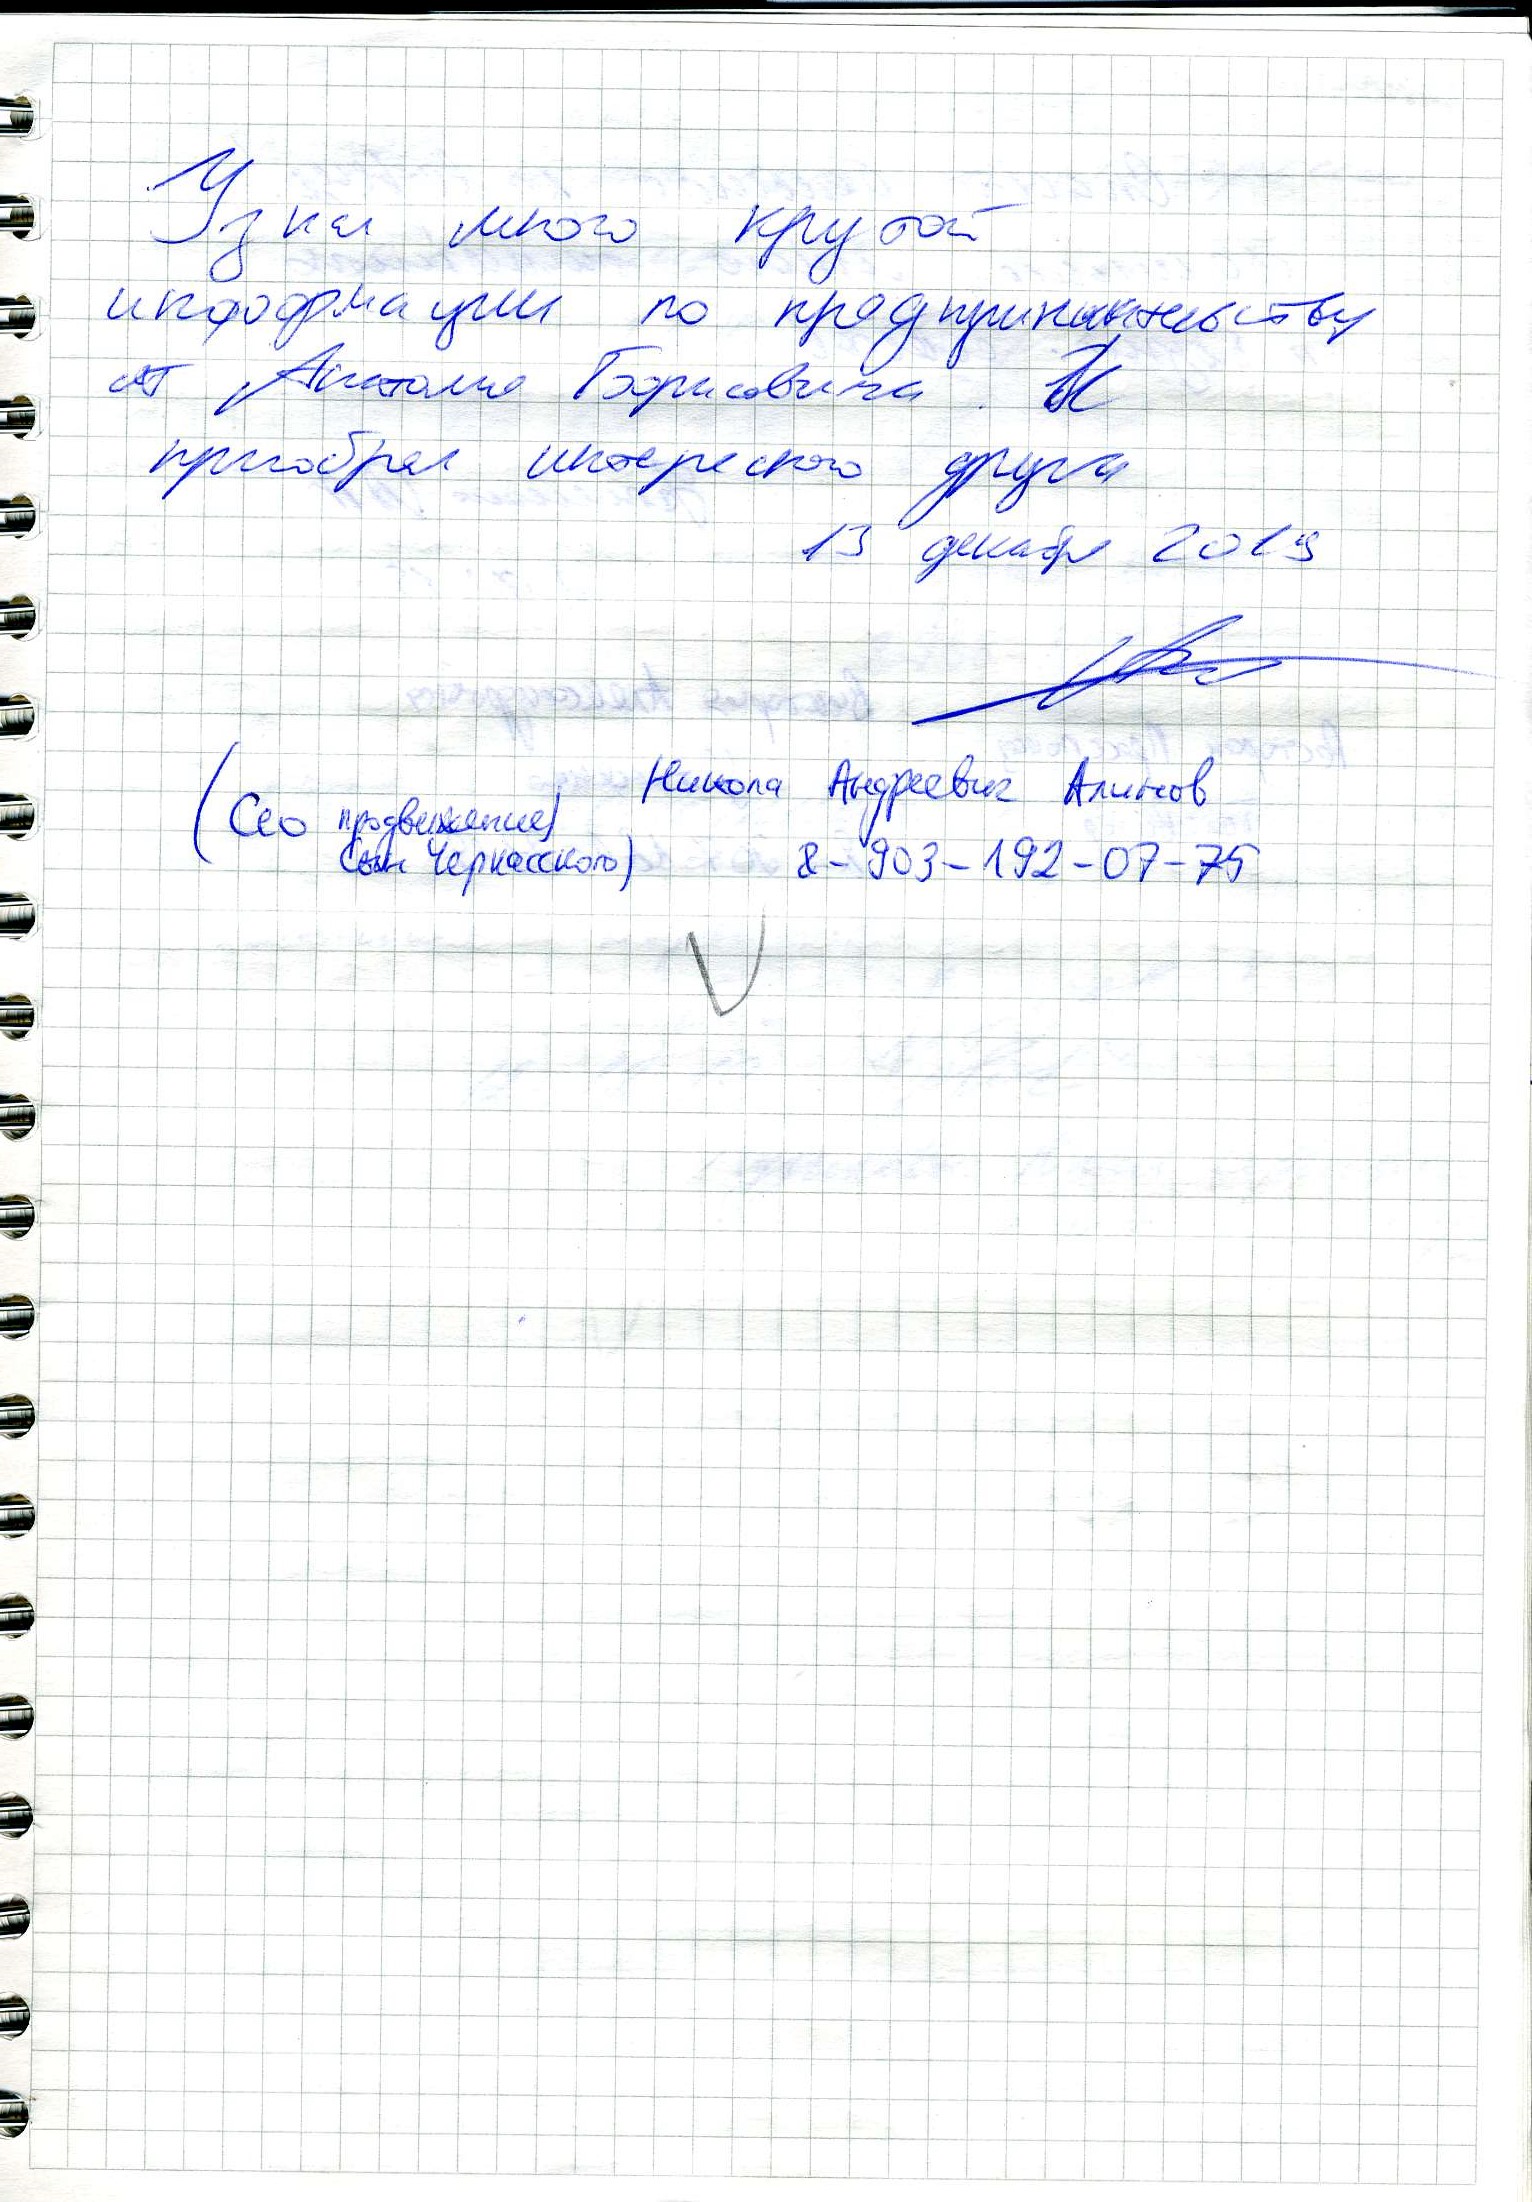 Узнал много крутой
информации по предпринимательству
от Анатолия Борисовича. И
приобрел интересного друга
13 декабря 2019
Никола Андреевич Алимов
(Сео продвижение)
Сын Черкасского)
8-903-192-07-75